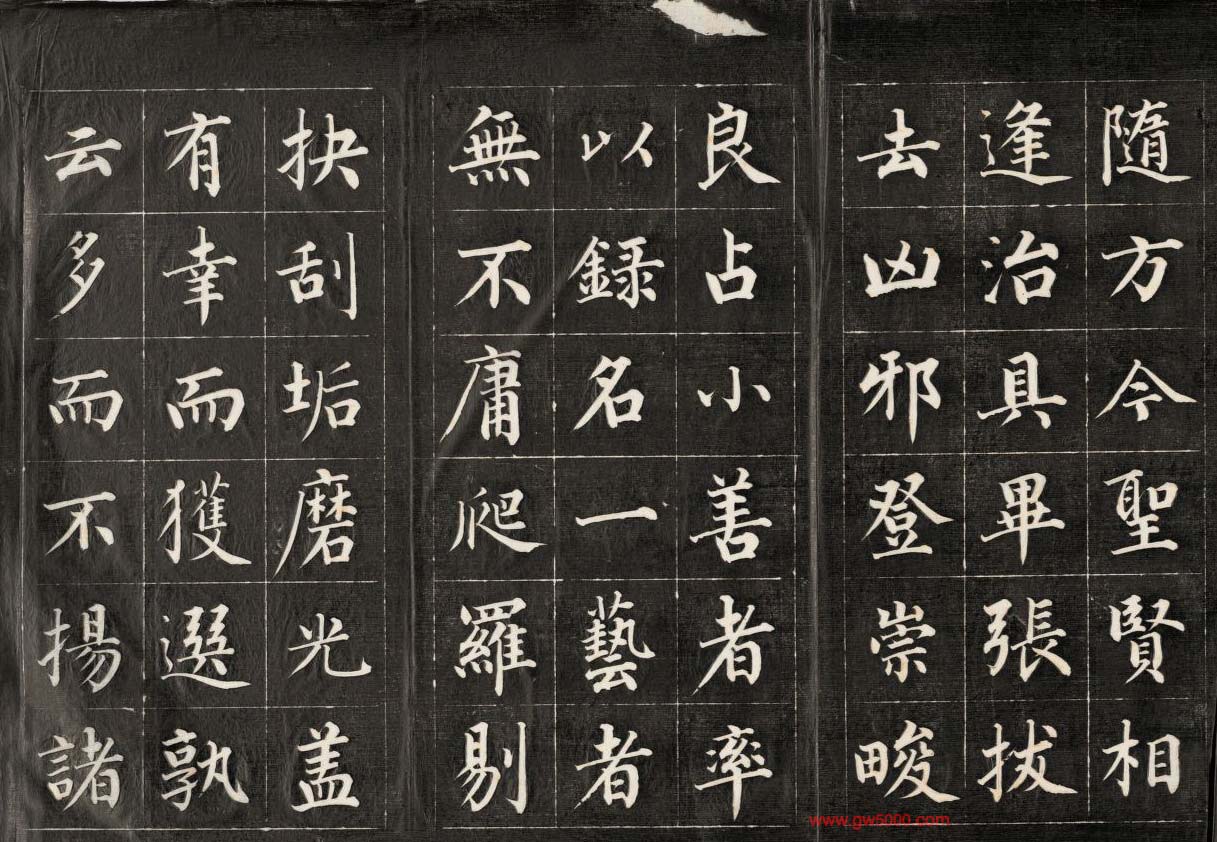 隨方今聖賢相
逢治具畢張拔
去凶邪登崇畯
良占小善者率
以録名一藝者
無不庸爬羅剔
抉刮垢磨光盖
有幸而獲選孰
云多而不揚諸
www.gw5000.com